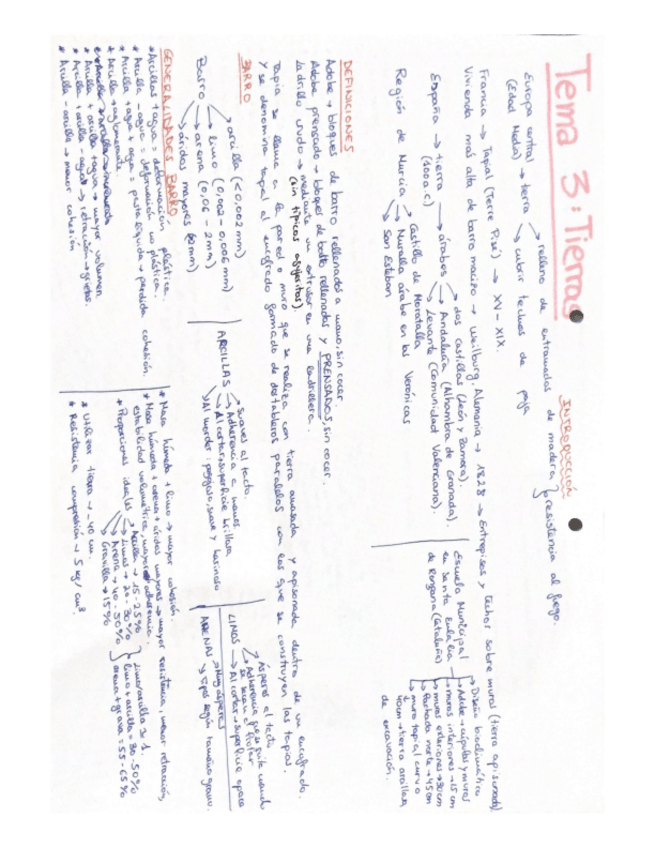 Tema 3: Tierras
INTRODUCCIÓN
Europa central → tierra → relleno de entramados de madera } resistencia al fuego.
(Edad Media) → cubrir techos de paja
Francia → Tapial (Terre Pisé) → XV - XIX.
Vivienda más alta de barro macizo → Weilburg, Alemania → 1828 → Entrepisos y techor sobre muros (tierra apisonada)
España → tierra → árabes → dos castillos (León y Zamora),
(6000 a.c) → Andalucía (Alhambra de Granada),
→ Levante (Comunidad Valenciana),
Región de Murcia → Castillo de Moratalla
→ Muralla árabe en las Verónicas
→ San Esteban
Escuela Municipal
en Santa Eulalia
de Ronçana (Cataluña)
→ Diseño bioclimático
→ Adobe → cúpulas y muros
→ muros interiores → 15 cm
→ muros exteriores → 30 cm
→ Fachada norte → 45 cm
→ muro tapial curvo
40cm → tierra arcillosa
de excavación.
DEFINICIONES
Adobe → bloques de barro rellenados a mano, sin cocer.
Adobe prensado → bloques de barro rellenados y PRENSADOS, sin cocer.
Ladrillo crudo → mediante un extrusor en una ladrillera.
(sin típicos agujeritos).
Tapia se llama a la pared o muro que se realiza con tierra amasada y apisonada dentro de un encofrado.
y se denomina tapial al encofrado formado de dos tableros paralelos con los que se construyen las tapias.
BARRO
Barro → arcilla (< 0,002 mm)
→ limo (0,002 - 0,006 mm)
→ arena (0,06 - 2 mm)
→ áridos mayores
ARCILLAS → Suaves al tacto.
→ Adherencia a manos
→ Al cortar, superficie brillosa
→ Al morder: pegajoso, suave y harinoso
LIMOS → Ásperos al tacto
→ Adherencia que se quita cuando
se seca al frotar
→ Al cortar → superficie opaca
ARENAS → Muy ásperas
→ Tipos según tamaño grano.
GENERALIDADES BARRO
* Arcillas + agua = deformación plástica.
* Arcilla - agua = deformación no plástica.
* Arcilla + agua + agua = pasta líquida → pérdida cohesión.
* Arcilla → aglomerante.
* Arcilla + arcilla + agua → mayor volumen
* Arcilla + arcilla - agua → retracción → grietas.
* Arcilla - arcilla → menor cohesión
* Masa húmeda + limo → mayor cohesión
* Masa húmeda + arena + áridos mayores → mayor resistencia, menor retracción,
estabilidad volumétrica, mayor adherencia.
* Proporciones ideales → Arcilla → 15 - 25%
→ Limos → 20 - 30%
→ Arena → 40 - 50%
→ Gravilla → 15%
limo/arcilla ≥ 1.
limo + arcilla = 30 - 50%
arena + grava = 55 - 65%
* Utilizar tierra → - 40 cm.
* Resistencia compresión → 5 kg/cm²